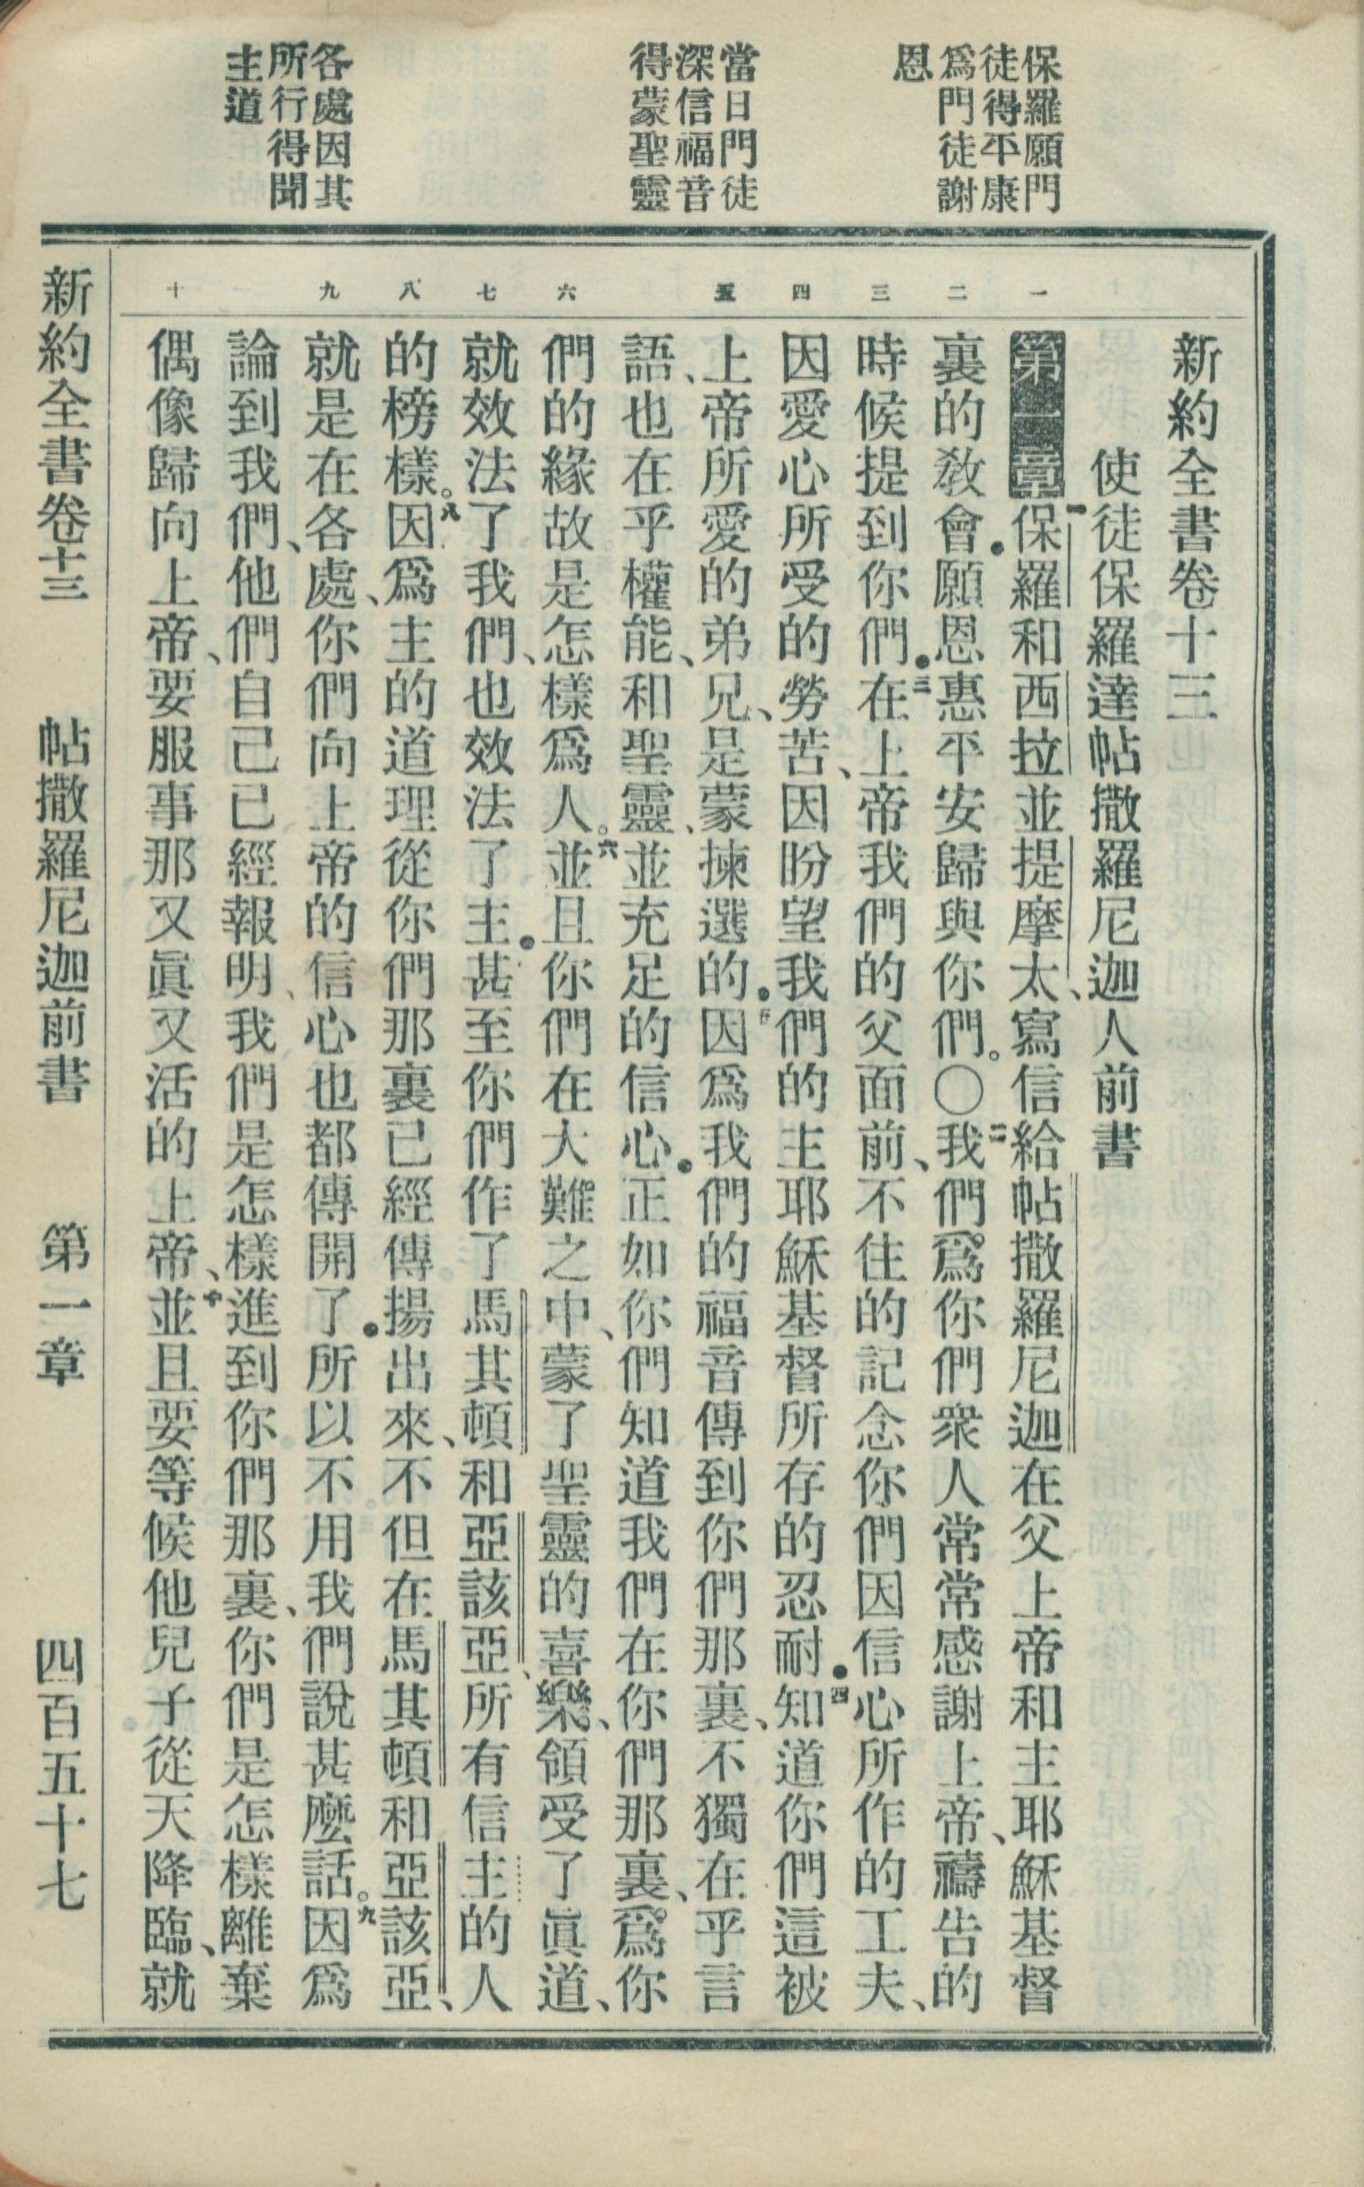 保羅願門
徒得平康
爲門徒謝
恩
當日門徒
深信福音
得蒙聖靈
各處因其
所行得聞
主道
一
二
三
四
五
六
七
八
九
十
新約全書卷十三
使徒保羅達帖撒羅尼迦人前書
第一章一保羅和西拉並提摩太、寫信給帖撒羅尼迦在父上帝和主耶穌基督
裏的敎會●願恩惠平安歸與你們。○二我們爲你們衆人常常感謝上帝、禱告的
時候提到你們●三在上帝我們的父面前、不住的記念你們因信心所作的工夫、
因愛心所受的勞苦、因盼望我們的主耶穌基督所存的忍耐●四知道你們這被
上帝所愛的弟兄、是蒙揀選的●五因爲我們的福音傳到你們那裏、不獨在乎言
語、也在乎權能、和聖靈、並充足的信心●正如你們知道我們在你們那裏、爲你
們的緣故是怎樣爲人。六並且你們在大難之中、蒙了聖靈的喜樂、領受了眞道、
就效法了我們、也效法了主●甚至你們作了馬其頓和亞該亞、所有信主的人
的榜樣。八因爲主的道理從你們那裏已經傳揚出來、不但在馬其頓和亞該亞、
就是在各處、你們向上帝的信心也都傳開了●所以不用我們說甚麼話。九因爲
論到我們、他們自己已經報明、我們是怎樣進到你們那裏、你們是怎樣離棄
偶像歸向上帝、要服事那又眞又活的上帝、十並且要等候他兒子從天降臨、就
新約全書卷十三 帖撒羅尼迦前書 第一章 四百五十七